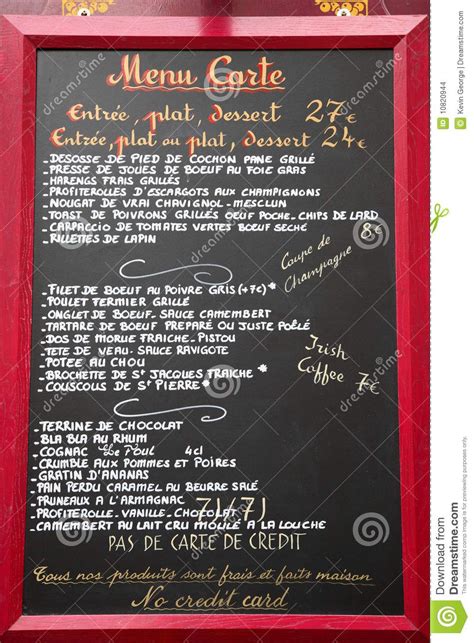 Menu Carte
Entrée, plat, dessert 27€
Entrée, plat ou plat, dessert 24€
_DESOSSE DE PIED DE COCHON PANE GRILLÉ
_PRESSE DE JOUES DE BOEUF AU FOIE GRAS
_HARENGS FRAIS GRILLÉS
_PROFITEROLLES D'ESCARGOTS AUX CHAMPIGNONS
_NOUGAT DE VRAI CHAVIGNOL - MESCLUN
_TOAST DE POIVRONS GRILLÉS OEUF POCHE - CHIPS DE LARD
_CARPACCIO DE TOMATES VERTES BOEUF SECHÉ
_RILLETTES DE LAPIN
8€
Coupe de
Champagne
_FILET DE BOEUF AU POIVRE GRIS (+7€)*
_POULET FERMIER GRILLÉ
_ONGLET DE BOEUF - SAUCE CAMEMBERT
_TARTARE DE BOEUF PREPARÉ OU JUSTE POÊLÉ
_DOS DE MORUE FRAICHE - PISTOU
_TETE DE VEAU - SAUCE RAVIGOTE
_POTEE AU CHOU
_BROCHETTE DE ST JACQUES FRAICHE*
_COUSCOUS DE ST PIERRE*
Irish
Coffee 7€
_TERRINE DE CHOCOLAT
_BLA BLA AU RHUM
_COGNAC 4cl
_CRUMBLE AUX POMMES ET POIRES
_GRATIN D'ANANAS
_PAIN PERDU CARAMEL AU BEURRE SALÉ
_PRUNEAUX A L'ARMAGNAC
_PROFITEROLLE - VANILLE - CHOCOLAT
_CAMEMBERT AU LAIT CRU MOULÉ A LA LOUCHE
PAS DE CARTE DE CREDIT
Tous nos produits sont frais et faits maison
No credit card
10820944
© Kevin George | Dreamstime.com
Download from
Dreamstime.com
This watermarked comp image is for previewing purposes only.
dreamstime